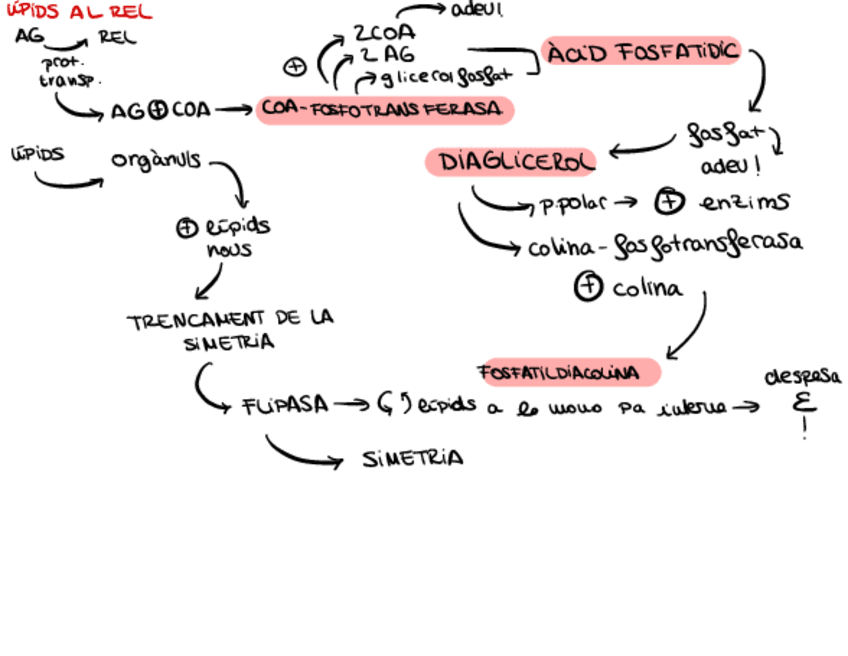 LÍPIDS AL REL
AG → REL
prot.
transp.
AG ⊕ COA → COA-FOSFOTRANSFERASA
⊕
2COA → adeu!
2 AG
glicerol fosfat
ÀCID FOSFATÍDIC
fosfat
adeu!
DIAGLICEROL
p.polar → ⊕ enzims
colina-fosfotransferasa
⊕ colina
FOSFATILDIACOLINA
LÍPIDS
orgànuls
⊕ lípids
nous
TRENCAMENT DE LA
SIMETRIA
FLIPASA → lípids a la mono pa interna → despesa
E
!
SIMETRIA